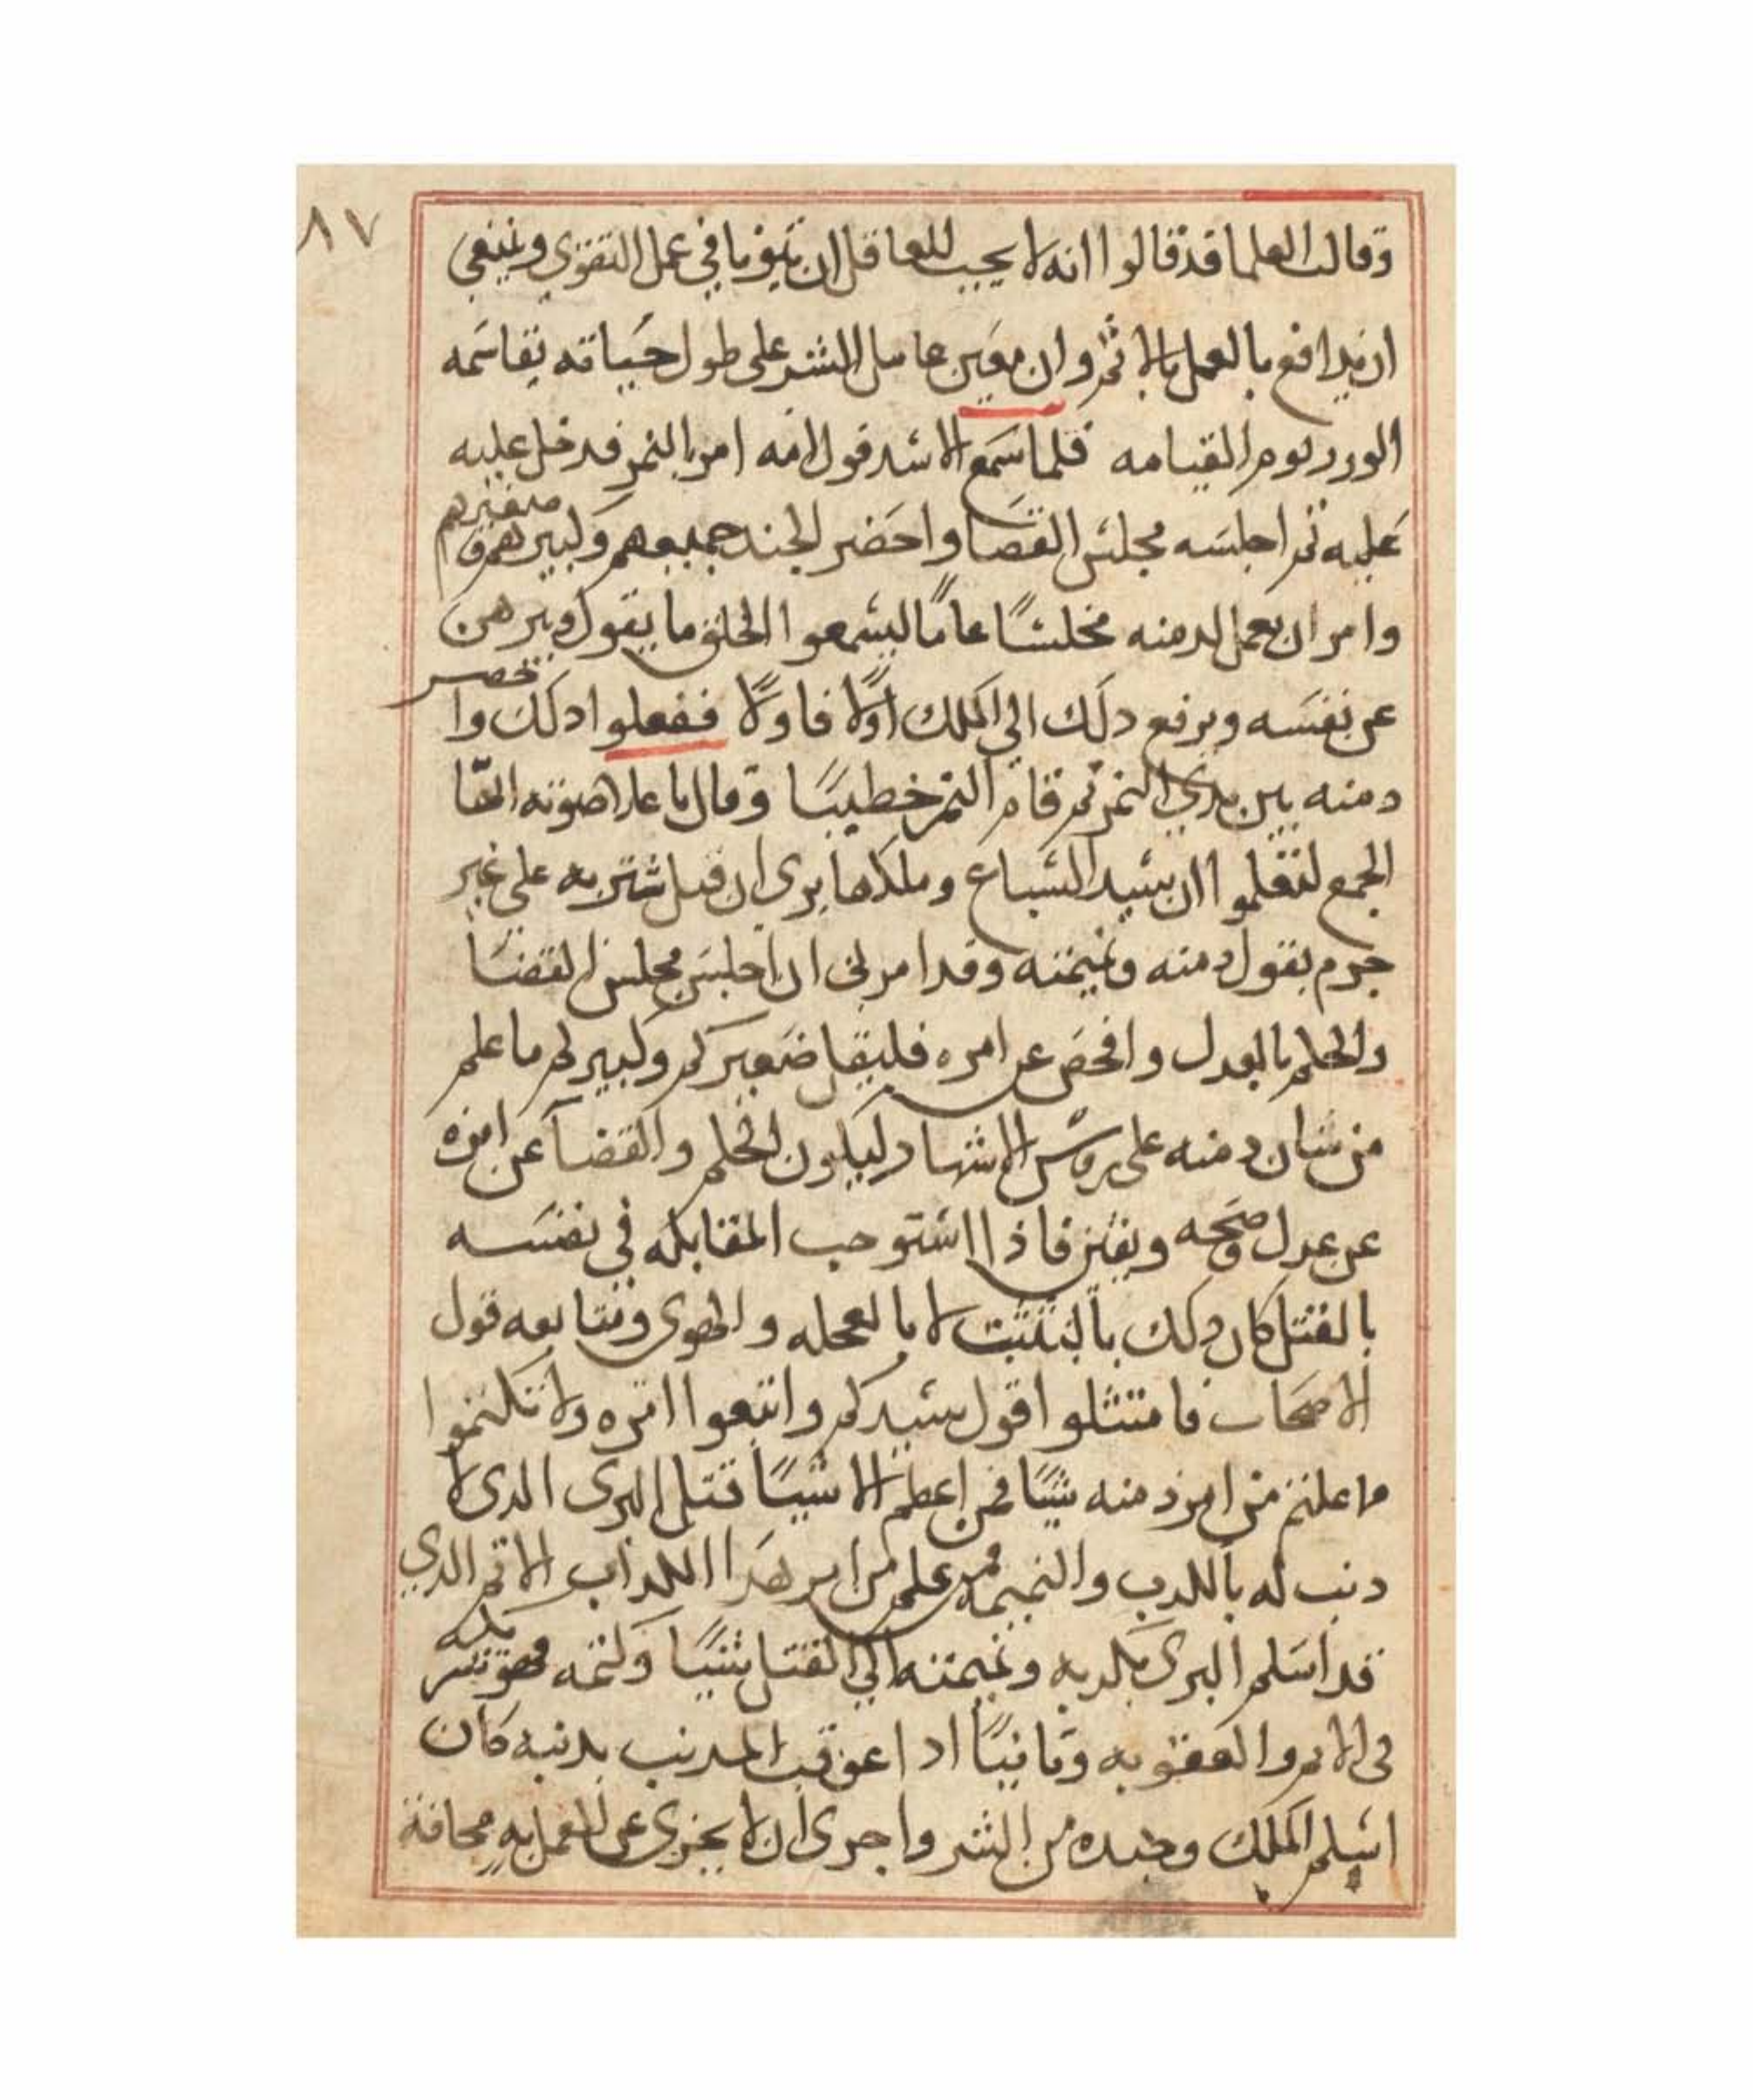 ٨٧
وقالت العلما قد قالوا انه لا يجب للعاقل ان يتوفا في عمل التقوي وينبغي
ان يدافع بالعمل بالاثم وان معين عامل الشر علي طول حياته يقاسمه
الوزر يوم القيامه فلما سمع الاسد قول امه امر بالنمر فدخل عليه
عليه ثم اجلسه مجلس القضا واحضر الجند جميعهم وكبيرهم وصغيرهم
وامر ان يعمل لدمنه مجلسًا عامًا ليسمعوا الخلق ما يقول ويبرهن
عن نفسه ويرفع دلك الي الملك اولًا فاولًا ففعلوا دلك واحضر
دمنه بين يدي النمر ثم قام النمر خطيبًا وقال باعلا صوته ايها
الجمع لتعلموا ان سيد السباع وملكها يري ان قتل شتربه علي غير
جرم بقول دمنه ونميمته وقد امرني ان اجلس مجلس القضا
والحكم بالعدل وافحص عن امره فليقل صغيركم وكبيركم ما علم
من شان دمنه علي روس الاشهاد ليكون الحكم والقضا عن امره
عن عدل وصحه ويقين فاذا استوجب المقابله في نفسه
بالقتل كان دلك بالتثبت لا بالعجله والهوي ومتابعه قول
الاصحاب فامتثلوا قول سيدكم واتبعوا امره ولا تكتموا
ما علمتم من امر دمنه شيًا فمن اعظم الاشيا قتل البري الدي لا
دنب له بالكدب والنميمه فمن علم من امر هذا الكذاب الاثم الدي
قد اسلم البري بكدبه ونميمته الي القتل شيًا وكتمه فهو شريكه
في الامر والعقوبه وثانيًا ادا عوقب المدنب بدنبه كان
اسلم للملك وجنده من الشر واجري ان لا يجزي عن العمل به مخافة